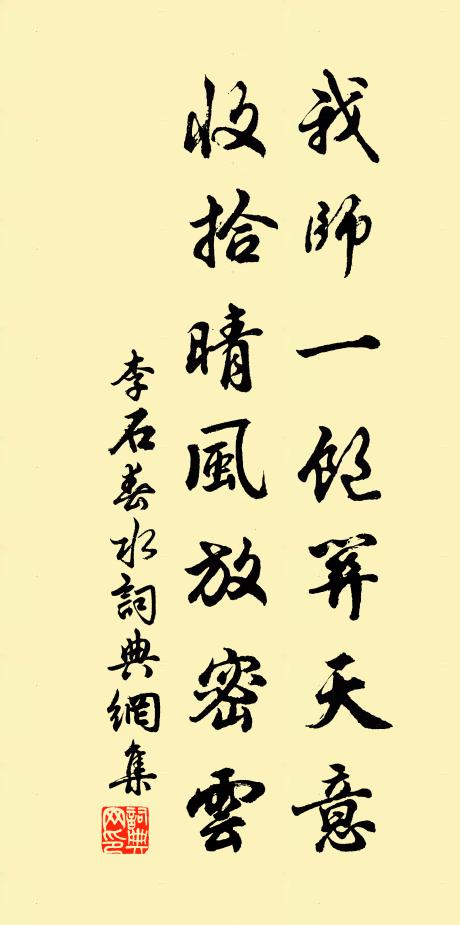 我師一飽關天意
收拾晴風放密雲
李石春水詞典網集
詞典网印